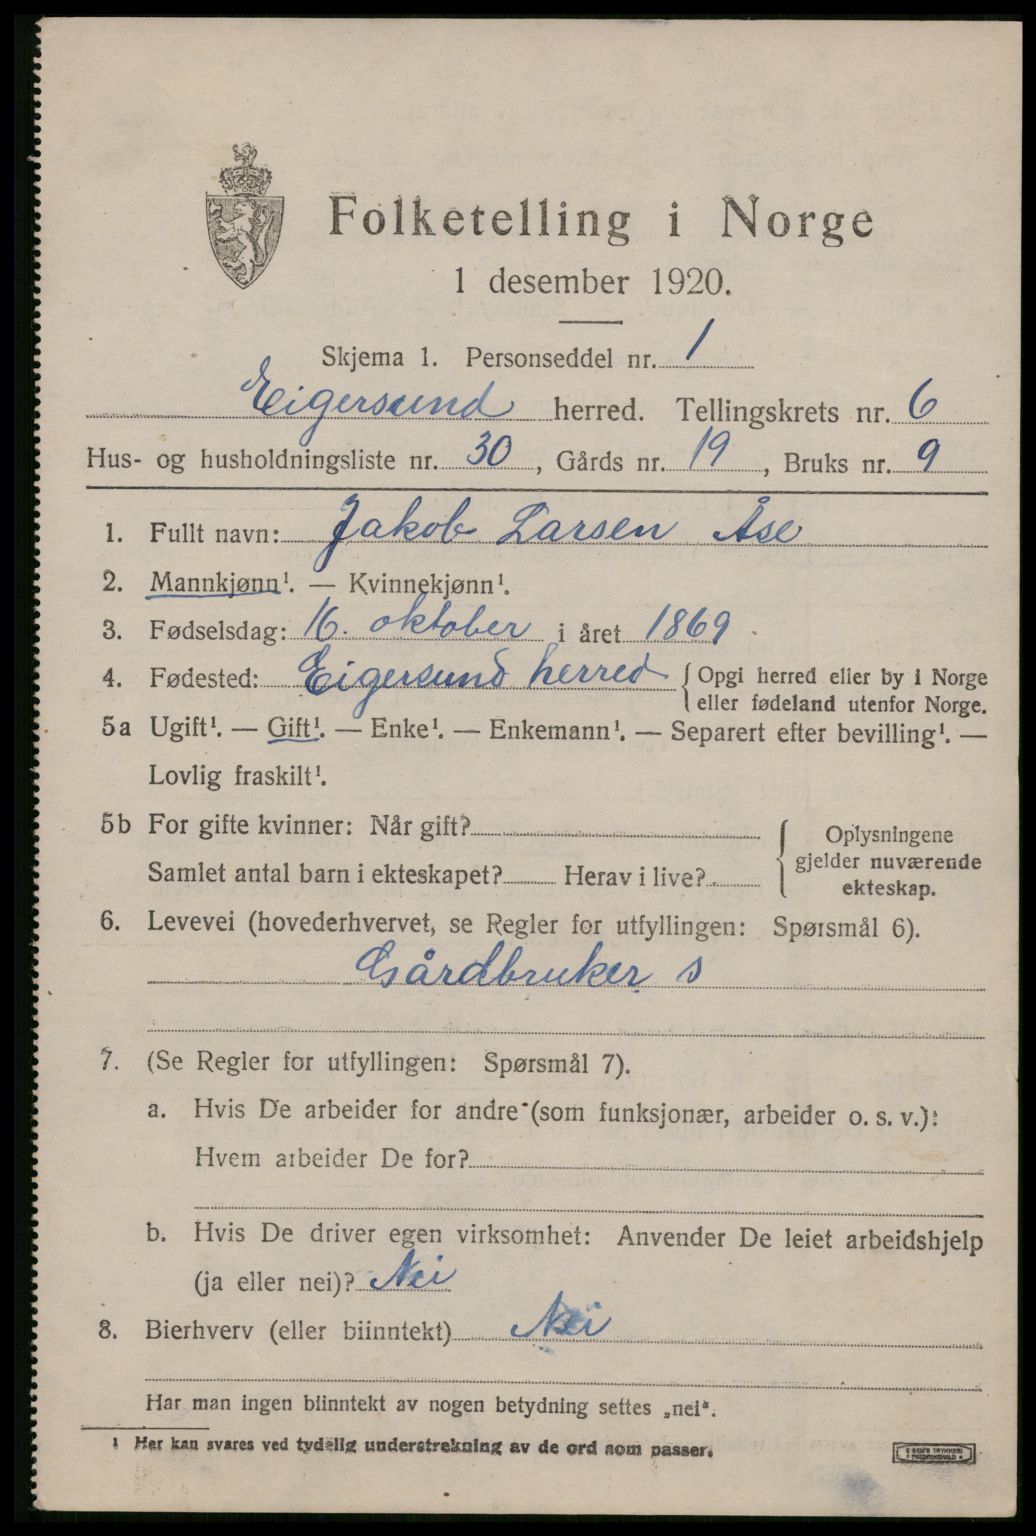 Folketelling i Norge
1 desember 1920.
Skjema 1. Personseddel nr. 1
Eigersund herred. Tellingskrets nr. 6
Hus- og husholdningsliste nr. 30, Gårds nr. 19, Bruks nr. 9
1. Fullt navn: Jakob Larsen Åse
2. Mannkjønn¹. — Kvinnekjønn¹.
3. Fødselsdag: 16. oktober i året 1869
4. Fødested: Eigersund herred { Opgi herred eller by i Norge
eller fødeland utenfor Norge.
5a Ugift¹. — Gift¹. — Enke¹. — Enkemann¹. — Separert efter bevilling¹. —
Lovlig fraskilt¹.
5b For gifte kvinner: Når gift?
Samlet antal barn i ekteskapet? Herav i live?
{ Oplysningene
gjelder nuværende
ekteskap.
6. Levevei (hovederhvervet, se Regler for utfyllingen: Spørsmål 6).
Gårdbruker s
7. (Se Regler for utfyllingen: Spørsmål 7).
a. Hvis De arbeider for andre (som funksjonær, arbeider o. s. v.):
Hvem arbeider De for?
b. Hvis De driver egen virksomhet: Anvender De leiet arbeidshjelp
(ja eller nei)? Nei
8. Bierhverv (eller biinntekt) Nei
Har man ingen biinntekt av nogen betydning settes „nei“.
1 Her kan svares ved tydelig understrekning av de ord som passer.